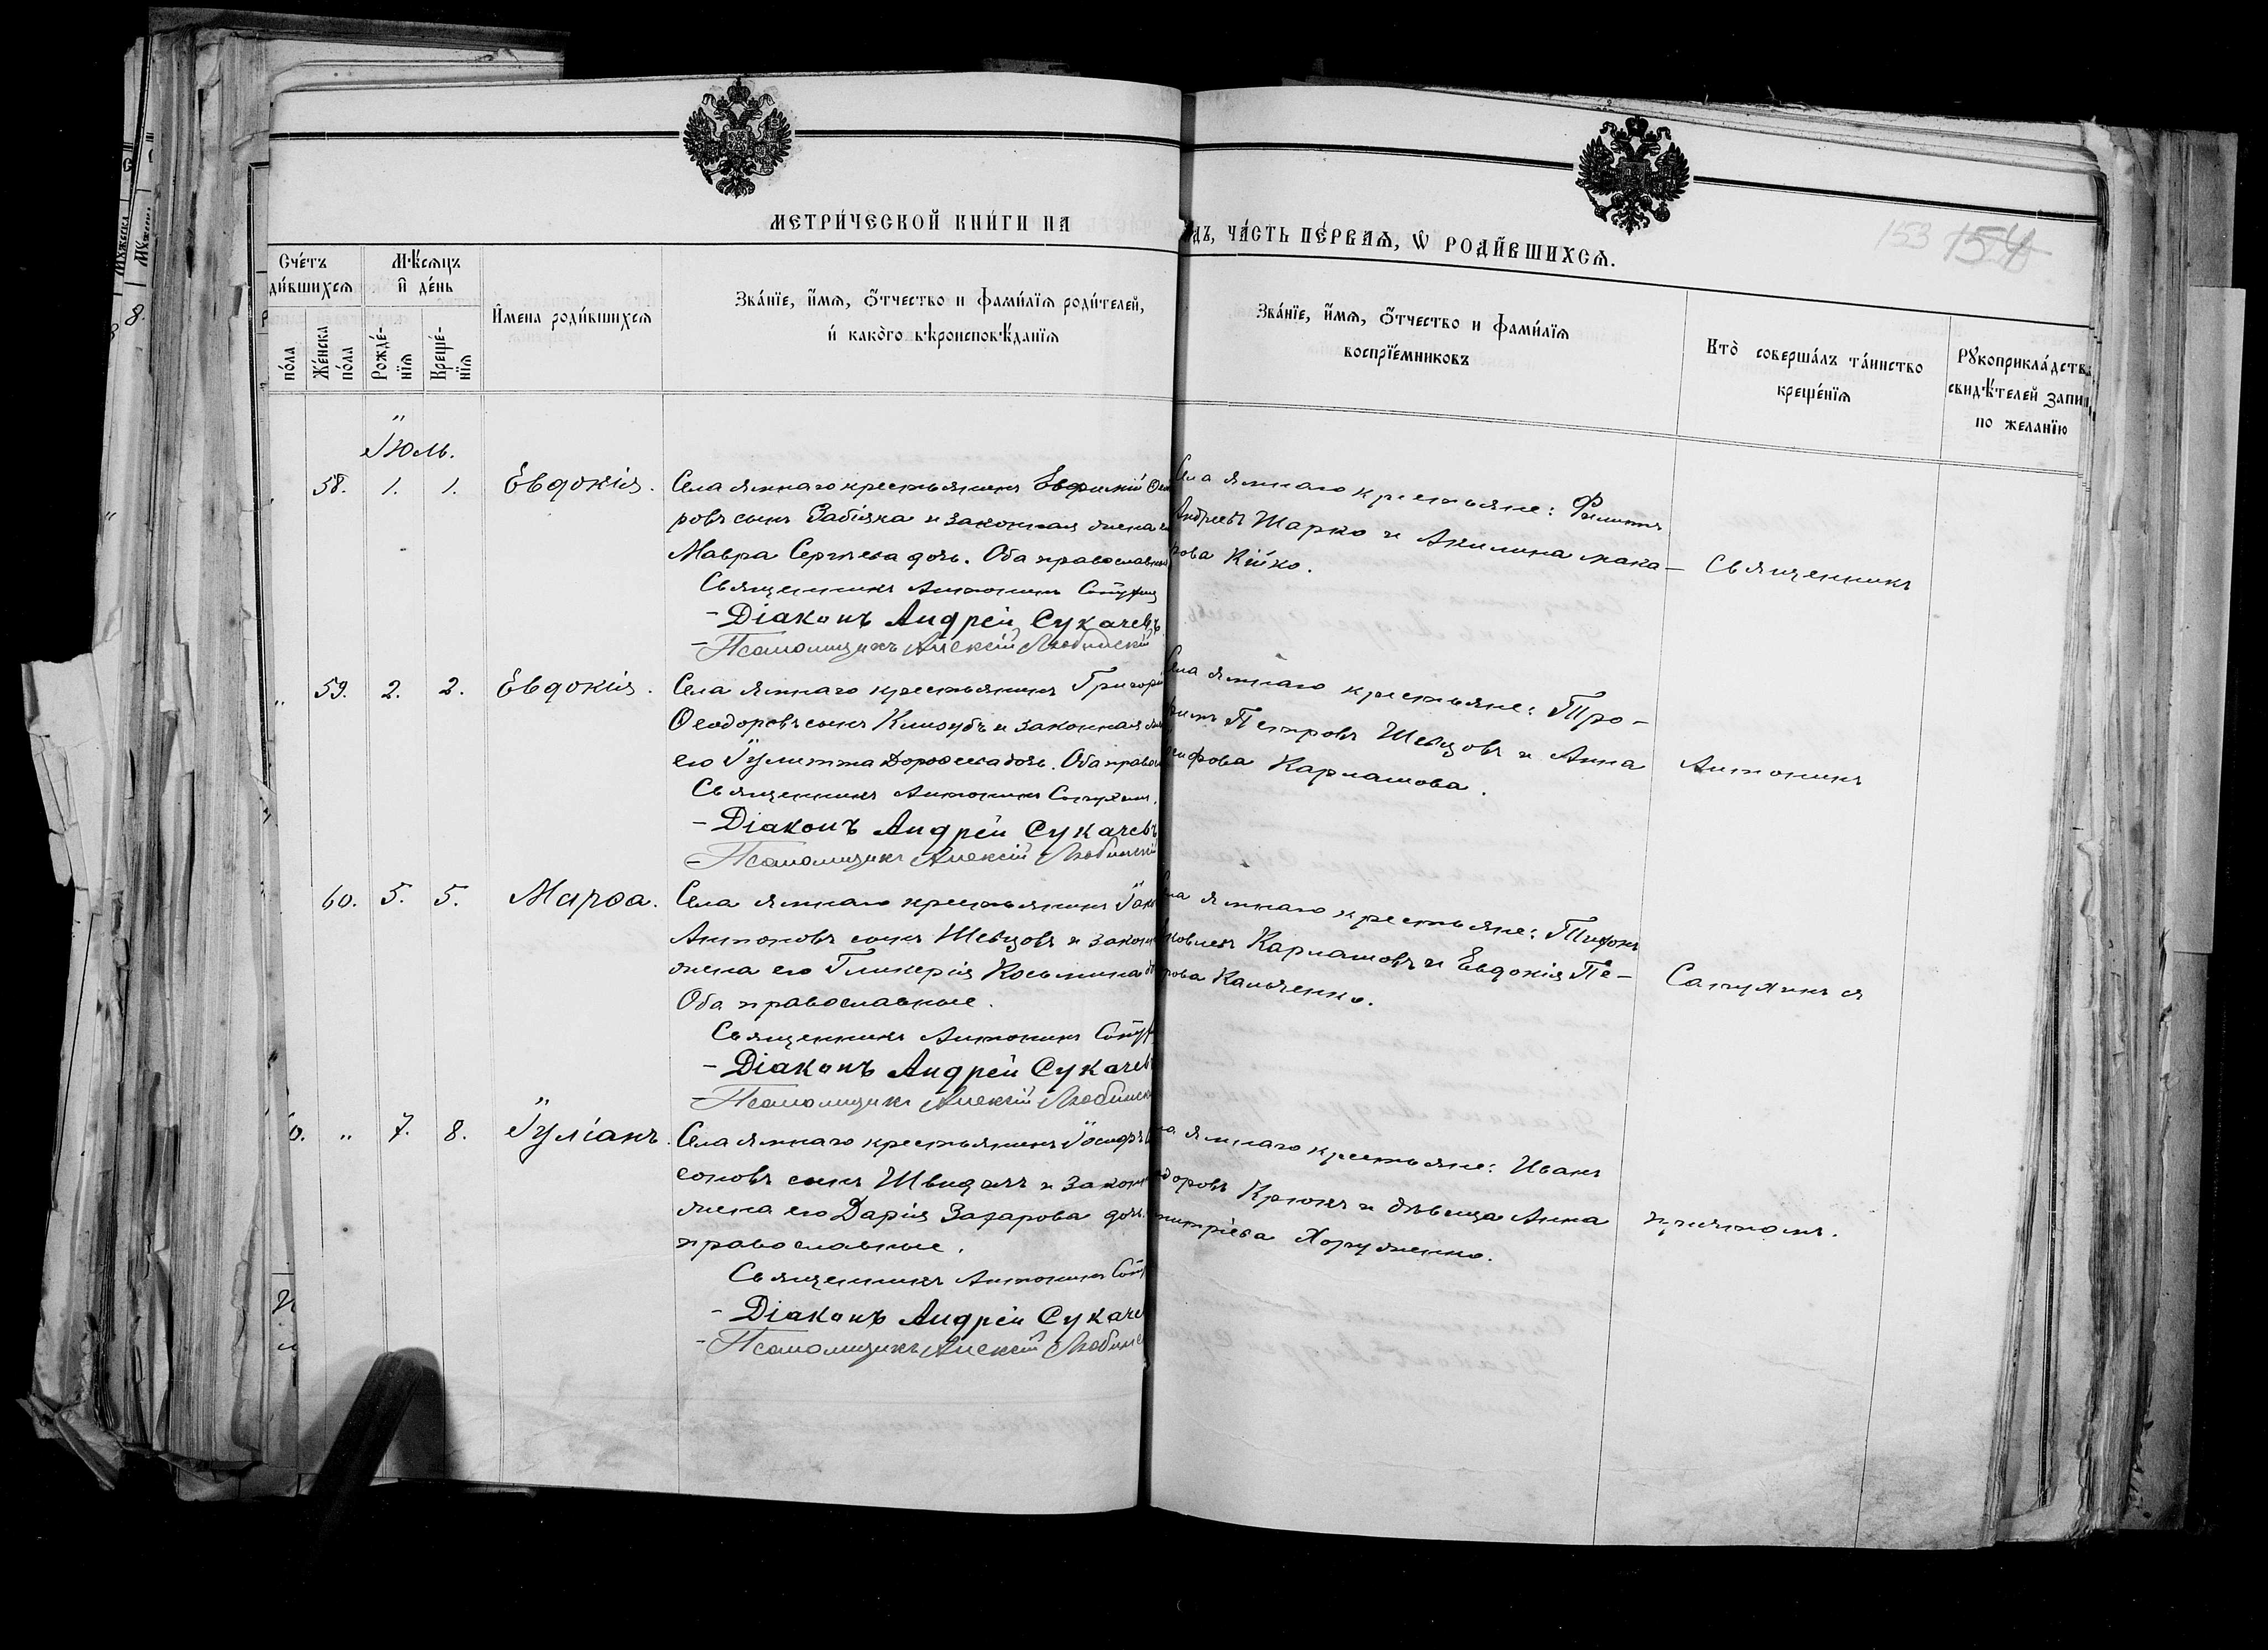 МЕТРИ́ЧЕСКОЙ КНИ́ГИ НА
ДЪ, ЧА́СТЬ ПЕ́РВАѦ, Ѡ҆ РОДИ́ВШИХСѦ.
153 154
Сче́тъ
ди́вшихсѧ
Мѣ́сѧцъ
и҆ де́нь
И҆мена̀ роди́вшихсѧ
Зва́нїе, и҆́мѧ, ѻ҆́тчество и фами́лїѧ роди́телей,
и҆ како́гѡ вѣроисповѣ́данїѧ
Зва́нїе, и҆́мѧ, ѻ҆́тчество и фами́лїѧ
воспрїе́мниковъ
Кто̀ соверша́лъ та́инство
креще́нїѧ
Рꙋкоприкла́дств
свидѣ́телей запи
по жела́нїю
по́ла
Же́нска
по́ла
Рожде́-
нїѧ
Креще́-
нїѧ
Іюль.
58. 1. 1. Евдокія.
Села Ямнаго крестьянинъ Евфимій Ѳео
ровъ сынъ Забіяка и законная жена е
Мавра Сергѣева дочь. Оба православн
Священникъ Антонинъ
- Діаконъ Андрей Сукачевъ.
- Псаломщикъ Алексій Любинскій
ела Ямнаго крестьяне: Филиппъ
Андреевъ Шарко и Акилина Мака-
рова Кійко.
Священникъ
59. 2. 2. Евдокія.
Села Ямнаго крестьянинъ Григорі
Ѳеодоровъ сынъ Клизубъ и законная же
его Іулитта Дороѳеева дочь. Оба правос
Священникъ Антонинъ
- Діаконъ Андрей Сукачевъ
- Псаломщикъ Алексій Любинскій
ела Ямнаго крестьяне: Тро-
фимъ Петровъ Шевцовъ и Анна
сифова Карпашова.
Антонинъ
60. 5. 5. Марѳа.
Села Ямнаго крестьянинъ Іак
Антоновъ сынъ Шевцовъ и закон
жена его Гликерія Косьмина до
Оба православные.
Священникъ Антонинъ
- Діаконъ Андрей Сукачев
- Псаломщикъ Алексій Любинск
ла Ямнаго крестьяне: Тихонъ
ковлевъ Карпашовъ и Евдокія Пе-
рова Калюченко.
Сапухинъ съ
0. „ 7. 8. Іуліанъ.
Села Ямнаго крестьянинъ Іосифъ
соновъ сынъ Швидахъ и закон
жена его Дарія Захарова дочь.
православные.
Священникъ Антонинъ
- Діаконъ Андрей Сукаче
- Псаломщикъ Алексій Любинс
ла Ямнаго крестьяне: Иванъ
доровъ Крюкъ и дѣвица Анна
митріева Хоруженко.
причтомъ.